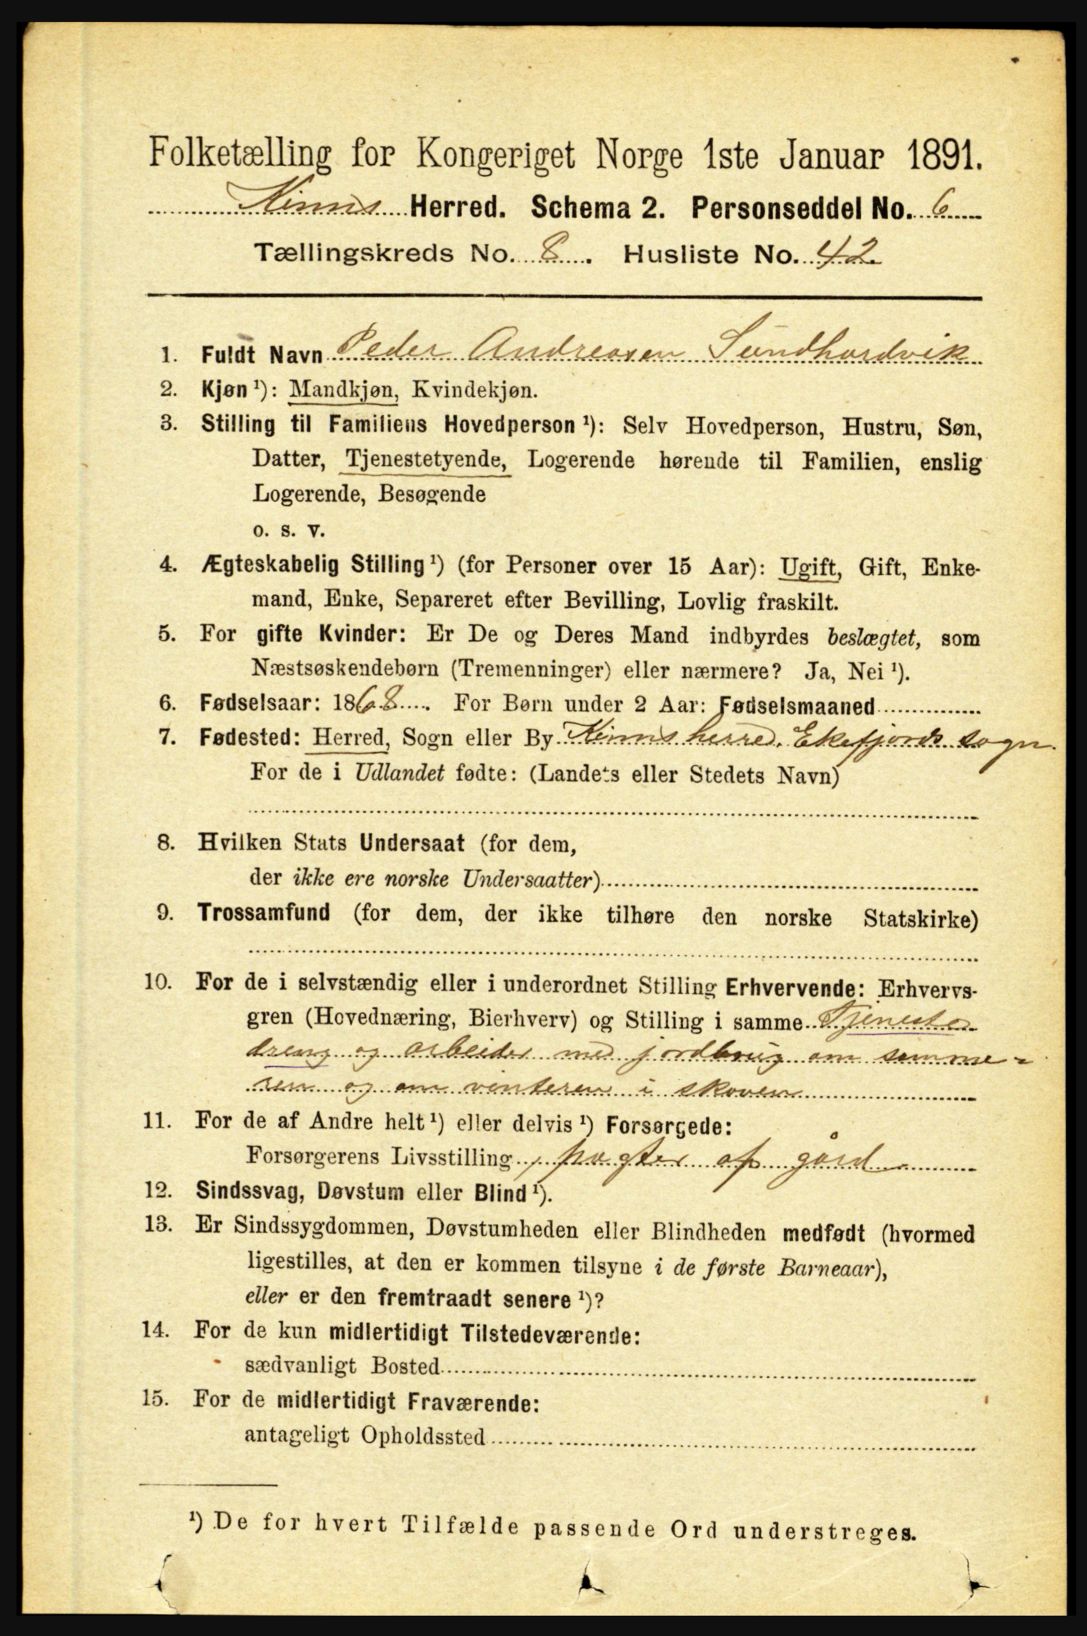 Folketælling for Kongeriget Norge 1ste Januar 1891.
Kinns Herred. Schema 2. Personseddel No. 6
Tællingskreds No. 8. Husliste No. 42.
1. Fuldt Navn Peder Andreasen Sundhordvik
2. Kjøn ¹): Mandkjøn, Kvindekjøn.
3. Stilling til Familiens Hovedperson ¹): Selv Hovedperson, Hustru, Søn,
Datter, Tjenestetyende, Logerende hørende til Familien, enslig
Logerende, Besøgende
o. s. v.
4. Ægteskabelig Stilling ¹) (for Personer over 15 Aar): Ugift, Gift, Enke-
mand, Enke, Separeret efter Bevilling, Lovlig fraskilt.
5. For gifte Kvinder: Er De og Deres Mand indbyrdes beslægtet, som
Næstsøskendebørn (Tremenninger) eller nærmere? Ja, Nei ¹).
6. Fødselsaar: 1868. For Børn under 2 Aar: Fødselsmaaned
7. Fødested: Herred, Sogn eller By Kinns herred. Ekefjords sogn.
For de i Udlandet fødte: (Landets eller Stedets Navn)
8. Hvilken Stats Undersaat (for dem,
der ikke ere norske Undersaatter)
9. Trossamfund (for dem, der ikke tilhøre den norske Statskirke)
10. For de i selvstændig eller i underordnet Stilling Erhvervende: Erhvervs-
gren (Hovednæring, Bierhverv) og Stilling i samme Tjeneste
dreng og arbeider med jordbrug om somme=
ren og om vinteren i skoven
11. For de af Andre helt ¹) eller delvis ¹) Forsørgede:
Forsørgerens Livsstilling pagter af gård.
12. Sindssvag, Døvstum eller Blind ¹).
13. Er Sindssygdommen, Døvstumheden eller Blindheden medfødt (hvormed
ligestilles, at den er kommen tilsyne i de første Barneaar),
eller er den fremtraadt senere ¹)?
14. For de kun midlertidigt Tilstedeværende:
sædvanligt Bosted
15. For de midlertidigt Fraværende:
antageligt Opholdssted
¹) De for hvert Tilfælde passende Ord understreges.